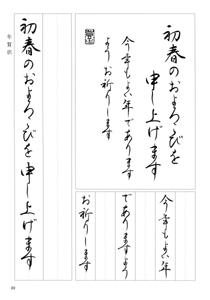 初春のおよろこびを
申し上げます
今年もよい年でありますようお祈りします
年賀状
初春のおよろこびを申し上げます
今年もよい年
でありますよう
お祈りします